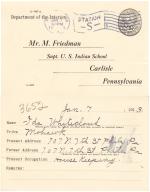 Department of the Interior
STATION
S
Mr. M. Friedman
Supt. U. S. Indian School
Carlisle
Pennsylvania
3652 Jan. 7 1913
Name
Tribe Mohawk
Present address 707 N. 7th St.
Present address 707 N. 7th St.
Present Occupation House Keeping